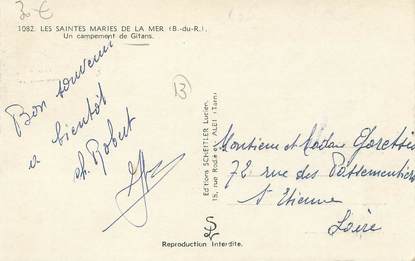 30€
1082. LES SAINTES MARIES DE LA MER (B.-du-R.).
Un campement de Gitans.
Bon souvenir
a bientôt
ch. Robert
13
Editions SCHEITLER Lucien,
15, rue Rodière ALBI (Tarn)
Monsieur et Madame
72 rue des Passementiers
St Etienne
Loire
Reproduction Interdite.